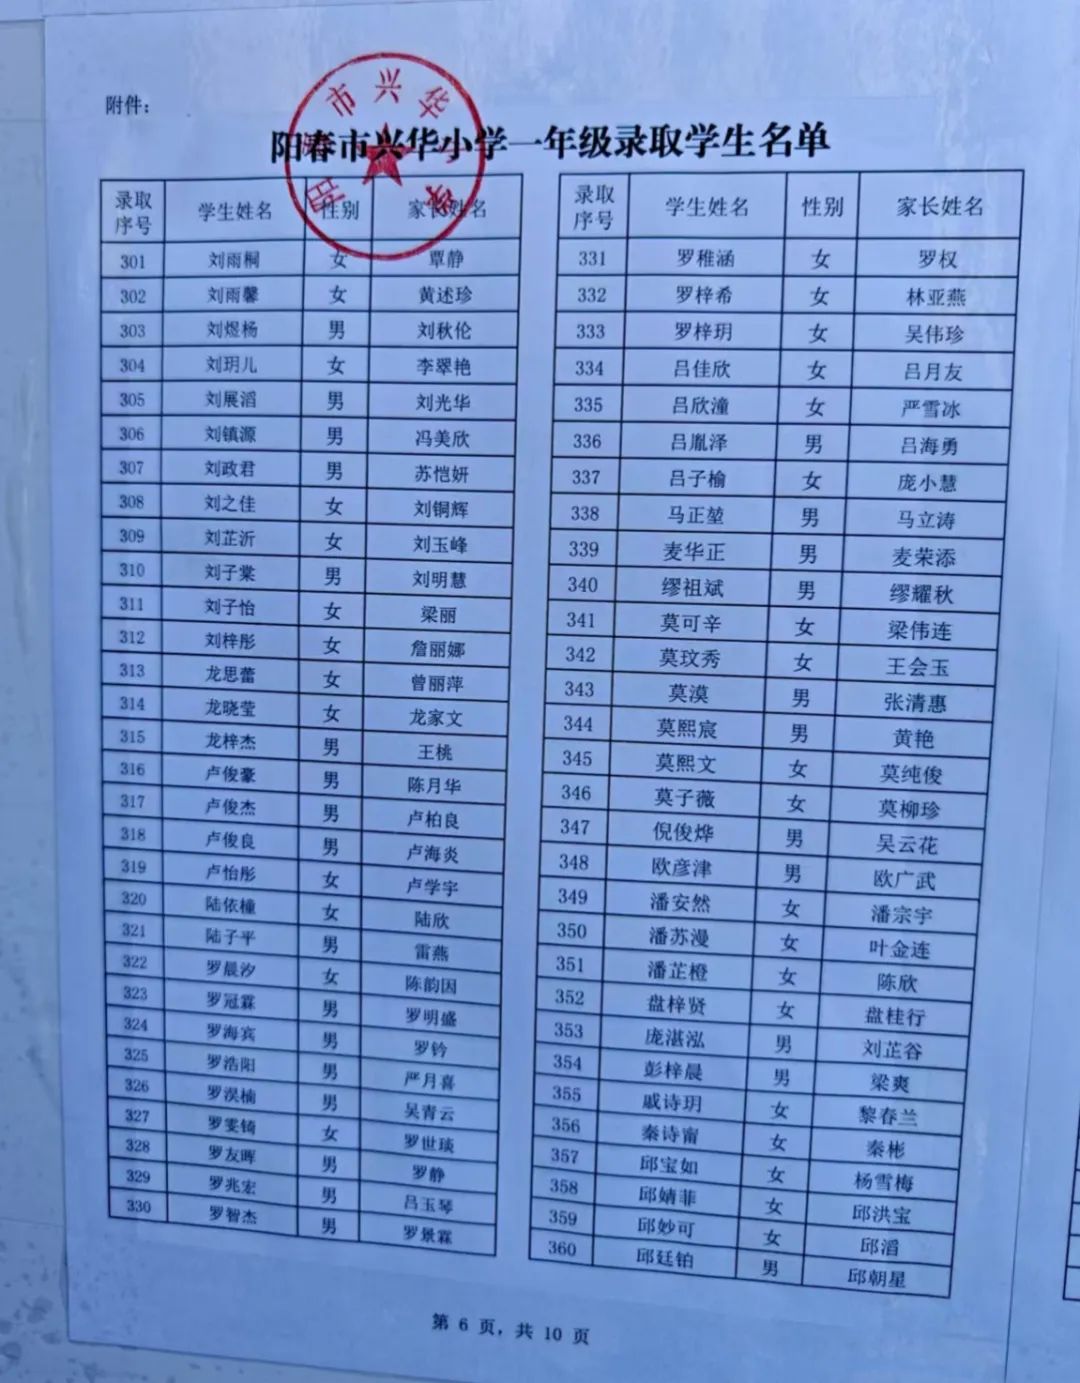 附件：
阳春市兴华小学一年级录取学生名单
录取序号 学生姓名 性别 家长姓名
301 刘雨桐 女 覃静
302 刘雨馨 女 黄述珍
303 刘煜杨 男 刘秋伦
304 刘玥儿 女 李翠艳
305 刘展滔 男 刘光华
306 刘镇源 男 冯美欣
307 刘政君 男 苏恺妍
308 刘之佳 女 刘铜辉
309 刘芷沂 女 刘玉峰
310 刘子棠 男 刘明慧
311 刘子怡 女 梁丽
312 刘梓彤 女 詹丽娜
313 龙思蕾 女 曾丽萍
314 龙晓莹 女 龙家文
315 龙梓杰 男 王桃
316 卢俊豪 男 陈月华
317 卢俊杰 男 卢柏良
318 卢俊良 男 卢海炎
319 卢怡彤 女 卢学宇
320 陆依橦 女 陆欣
321 陆子平 男 雷燕
322 罗晨汐 女 陈韵因
323 罗冠霖 男 罗明盛
324 罗海宾 男 罗钤
325 罗浩阳 男 严月喜
326 罗淏楠 男 吴青云
327 罗雯锜 女 罗世琰
328 罗友晖 男 罗静
329 罗兆宏 男 吕玉琴
330 罗智杰 男 罗景霖
录取序号 学生姓名 性别 家长姓名
331 罗稚涵 女 罗权
332 罗梓希 女 林亚燕
333 罗梓玥 女 吴伟珍
334 吕佳欣 女 吕月友
335 吕欣潼 女 严雪冰
336 吕胤泽 男 吕海勇
337 吕子榆 女 庞小慧
338 马正堃 男 马立涛
339 麦华正 男 麦荣添
340 缪祖斌 男 缪耀秋
341 莫可辛 女 梁伟连
342 莫玟秀 女 王会玉
343 莫漠 男 张清惠
344 莫熙宸 男 黄艳
345 莫熙文 女 莫纯俊
346 莫子薇 女 莫柳珍
347 倪俊烨 男 吴云花
348 欧彦津 男 欧广武
349 潘安然 女 潘宗宇
350 潘苏漫 女 叶金连
351 潘芷橙 女 陈欣
352 盘梓贤 女 盘桂行
353 庞湛泓 男 刘芷谷
354 彭梓晨 男 梁爽
355 戚诗玥 女 黎春兰
356 秦诗甯 女 秦彬
357 邱宝如 女 杨雪梅
358 邱婧菲 女 邱洪宝
359 邱妙可 女 邱滔
360 邱廷铂 男 邱朝星
第 6 页，共 10 页
阳春市兴华小学